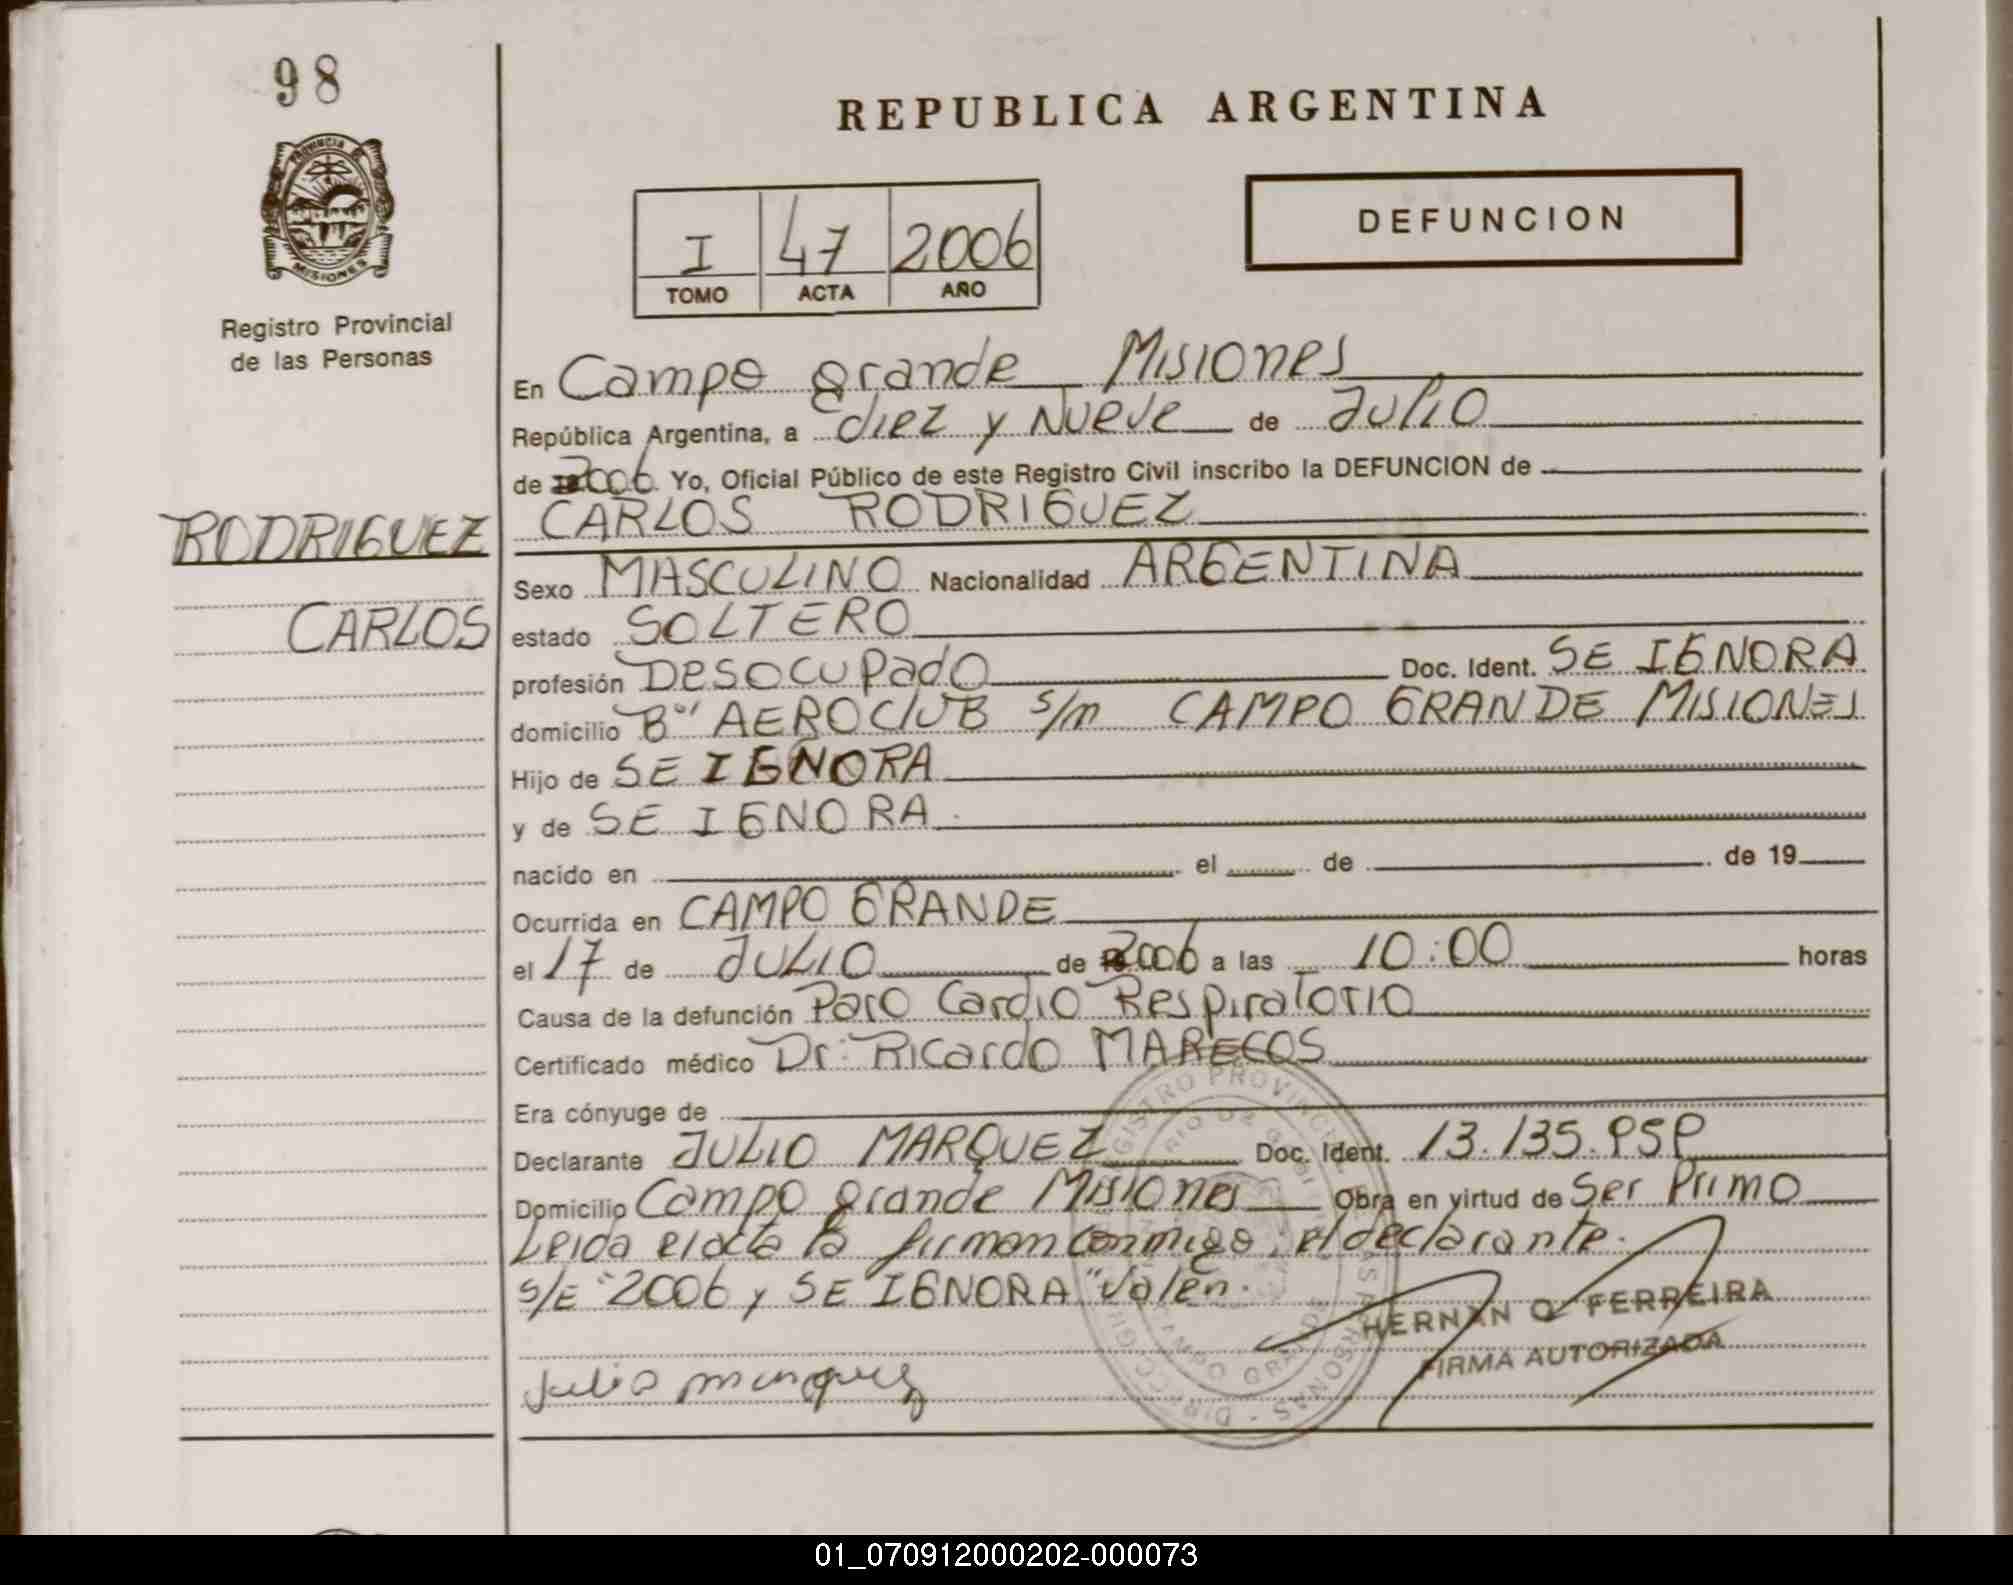 98
PROVINCIA DE
MISIONES
Registro Provincial
de las Personas
REPUBLICA ARGENTINA
I 47 2006
TOMO ACTA AÑO
DEFUNCION
En Campo grande Misiones
República Argentina, a diez y Nueve de Julio
de 2006 Yo, Oficial Público de este Registro Civil inscribo la DEFUNCION de
CARLOS RODRIGUEZ
RODRIGUEZ
CARLOS
Sexo MASCULINO Nacionalidad ARGENTINA
estado SOLTERO
profesión Desocupado Doc. Ident. SE IGNORA
domicilio B° AEROCLUB s/n CAMPO GRANDE MISIONES
Hijo de SE IGNORA
y de SE IGNORA
nacido en el de de 19
Ocurrida en CAMPO GRANDE
el 17 de JULIO de 2006 a las 10:00 horas
Causa de la defunción Paro Cardio Respiratorio
Certificado médico Dr: Ricardo MARECOS
Era cónyuge de
Declarante JULIO MARQUEZ Doc. Ident. 13.135.959
Domicilio Campo grande Misiones Obra en virtud de Ser Primo
Leida el acta la firman conmigo; el declarante.
S/E "2006 y SE IGNORA" Valen.
HERNAN O. FERREIRA
FIRMA AUTORIZADA
Julio marquez
01_070912000202-000073